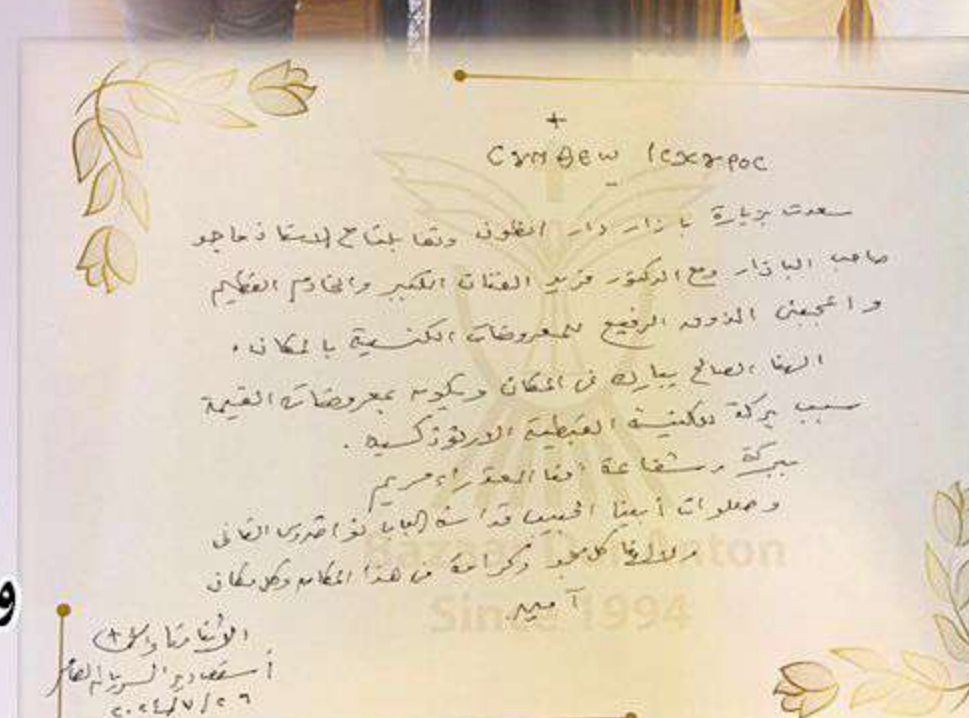 +
ϹⲨⲚ ⲐⲈⲰ ⲒⲤⲬⲨⲢⲞⲤ
سعدت بزيارة بازار دار انطون وتقابلنا مع الاستاذ ماجد
صاحب البازار ومع الدكتور فريد الفنان الكبير والخادم العظيم
واعجبنى الذوق الرفيع للمعروضات الكنسية بالمكان .
الهنا الصالح يبارك فى المكان ويكون بمعروضاته القيمة
سبب بركة للكنيسة القبطية الارثوذكسية .
ببركة وشفاعة امنا العذراء مريم
وصلوات أبينا الحبيب قداسة البابا تواضروس الثانى
ولالهنا كل مجد وكرامة فى هذا المكان وكل مكان
آمين
الأنبا
أسقف دير السريان العامر
٢٠٢٤/٧/٢٦
Bazaar Anton
Since 1994
و